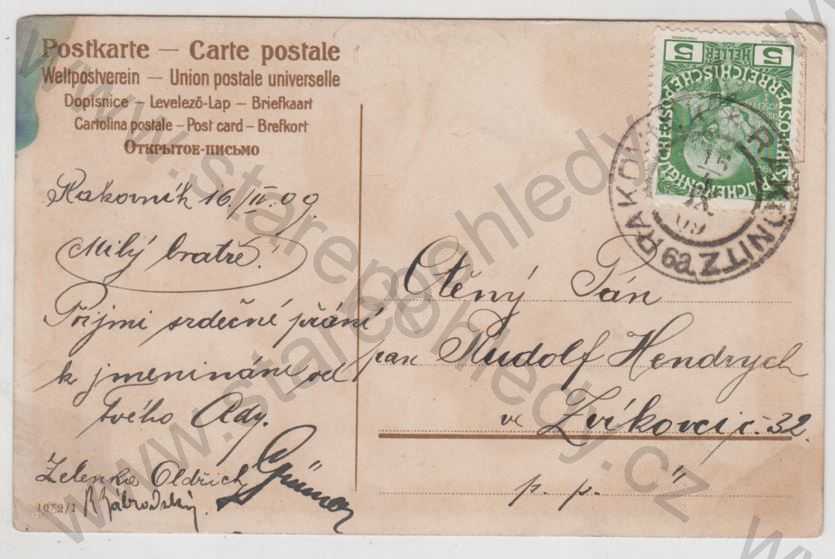 Postkarte — Carte postale
Weltpostverein — Union postale universelle
Dopisnice — Levelező-Lap — Briefkaart
Cartolina postale — Post card — Brefkort
Открытое-письмо
Rakovník 16/IV. 09.
Milý bratře!
Přijmi srdečné přání
k jmeninám od
tvého Ady.
Zelenka Oldřich
1072/1
Ctěný Pán
pan Rudolf Hendrych
ve Zvíkovci č. 32.
p. p.
5 HELLER 5
RAKOVNÍK RAKONITZ
6a
09
www.starepohledy.cz